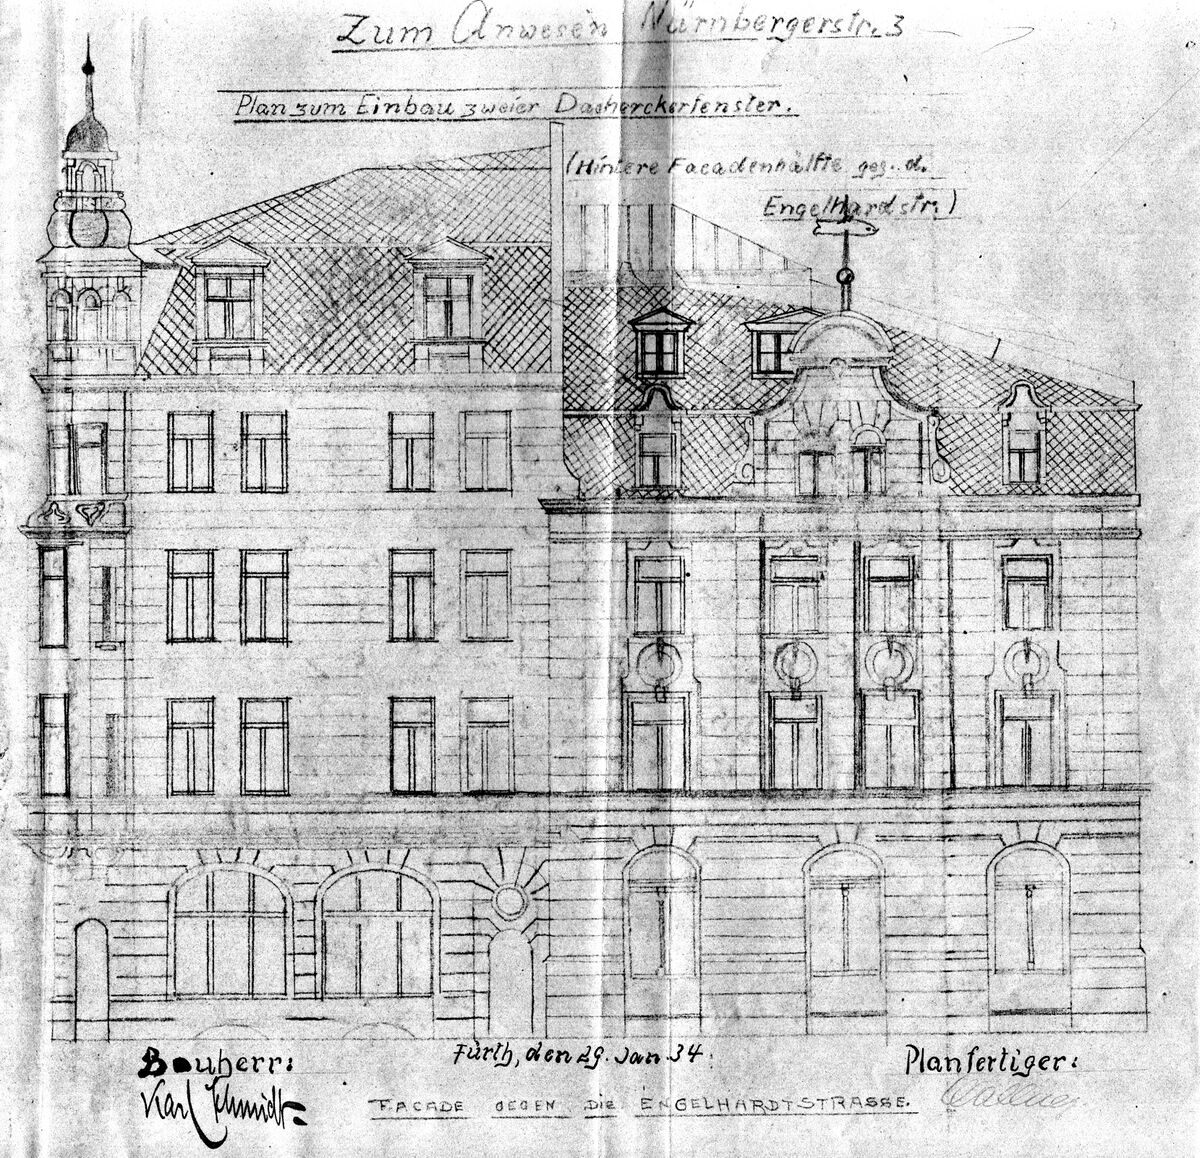 Zum Anwesen Nürnbergerstr. 3
Plan zum Einbau zweier Dacherckerfenster.
(Hintere Facadenhälfte geg. d.
Engelhardstr.)
Fürth, den 29. Jan 34.
Bauherr:
Planfertiger:
Karl Schmidt
FACADE GEGEN DIE ENGELHARDTSTRASSE.